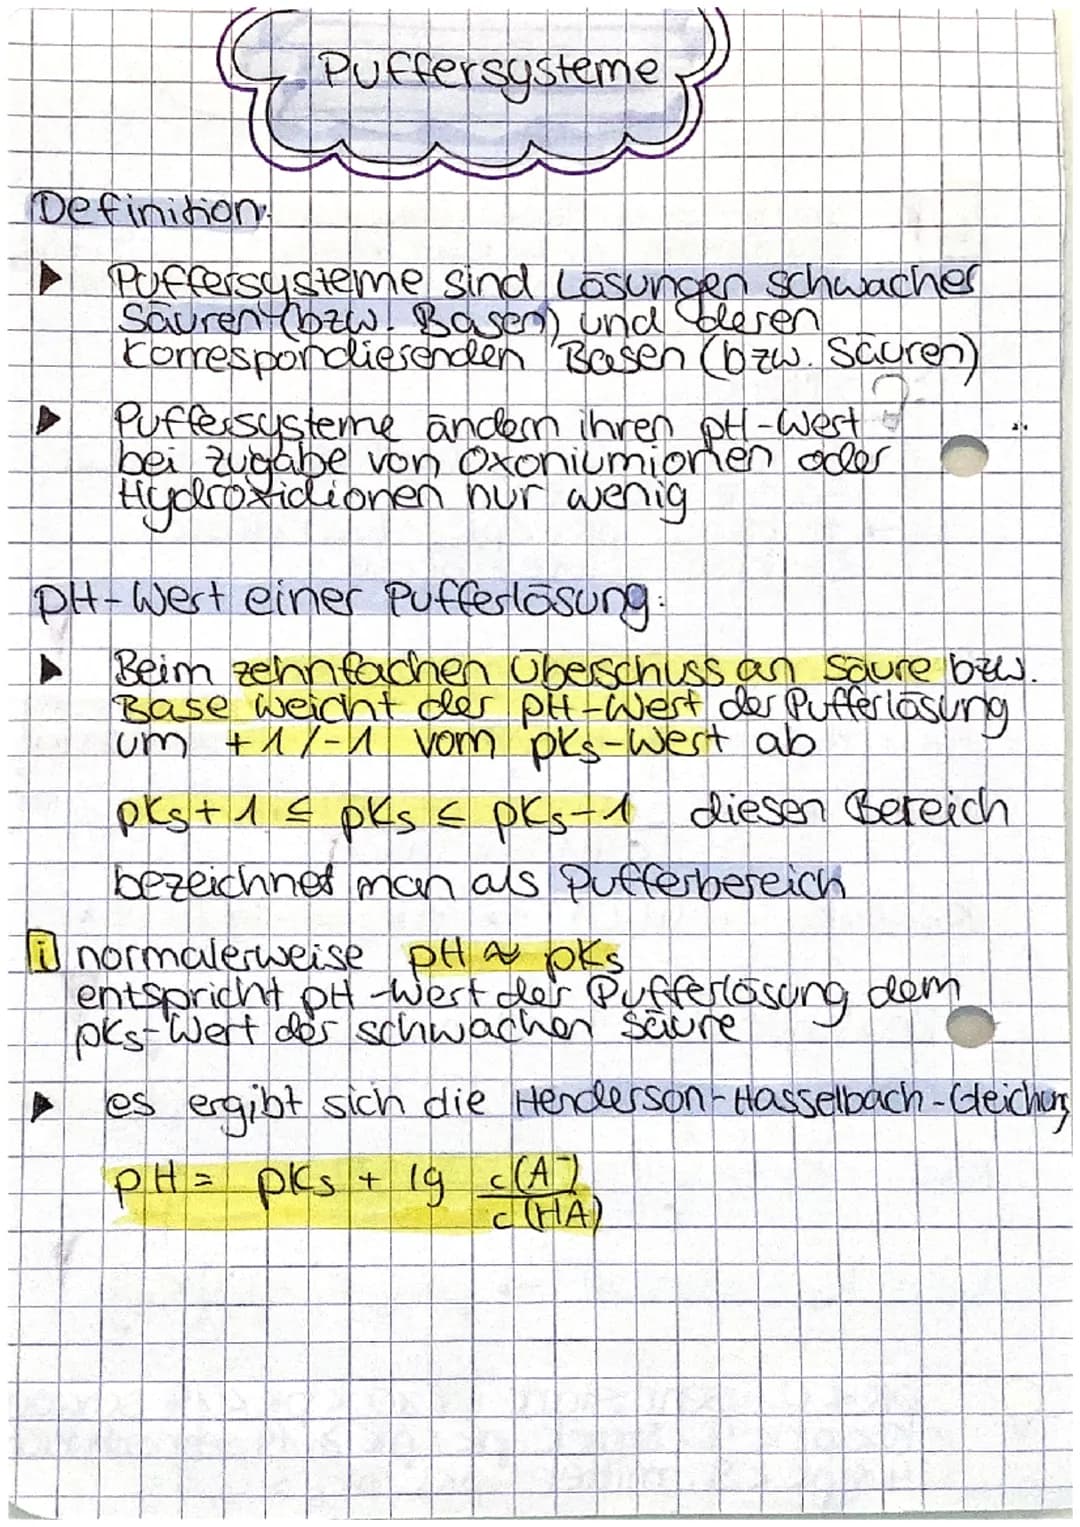 Puffersysteme
Definition:
▶ Puffersysteme sind Lösungen schwacher
Säuren (bzw. Basen) und deren
korrespondierenden Basen (bzw. Säuren)
▶ Puffersysteme ändern ihren pH-Wert
bei zugabe von Oxoniumionen oder
Hydroxidionen nur wenig
pH-Wert einer Pufferlösung:
▶ Beim zehnfachen Überschuss an Säure bzw.
Base weicht der pH-Wert der Pufferlösung
um +1/-1 vom pKs-Wert ab
pKs+1 ≤ pKs ≤ pKs-1 diesen Bereich
bezeichnet man als Pufferbereich
i normalerweise pH ≈ pKs
entspricht pH-Wert der Pufferlösung dem
pKs-Wert der schwachen Säure
▶ es ergibt sich die Henderson-Hasselbach-Gleichung
pH = pKs + lg c(A⁻)
c(HA)